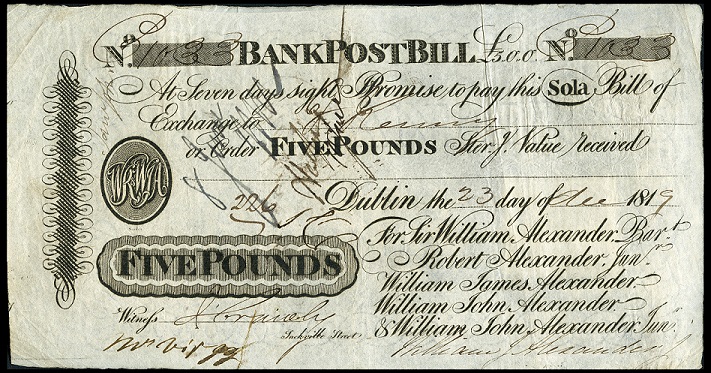 No. 1033 BANK POST BILL £5.0.0. No. 1033
At Seven days sight, I Promise to pay this Sola Bill of
Exchange to
or Order FIVE POUNDS Ster.g Value received
226 Dublin the 23 day of Dec 1819
For Sir William Alexander Bar.t
FIVE POUNDS Robert Alexander Jun.r
William James Alexander
William John Alexander
Witness & William John Alexander Jun.r
Sackville Street William J Alexander J